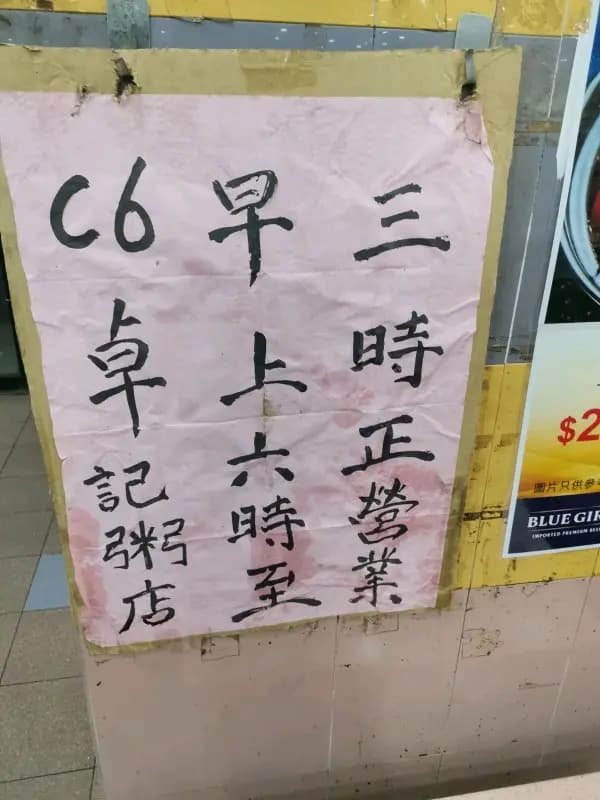 C6 卓記粥店
早上六時至
三時正營業
$2
圖片只供參
BLUE GIR
IMPORTED PREMIUM BEE